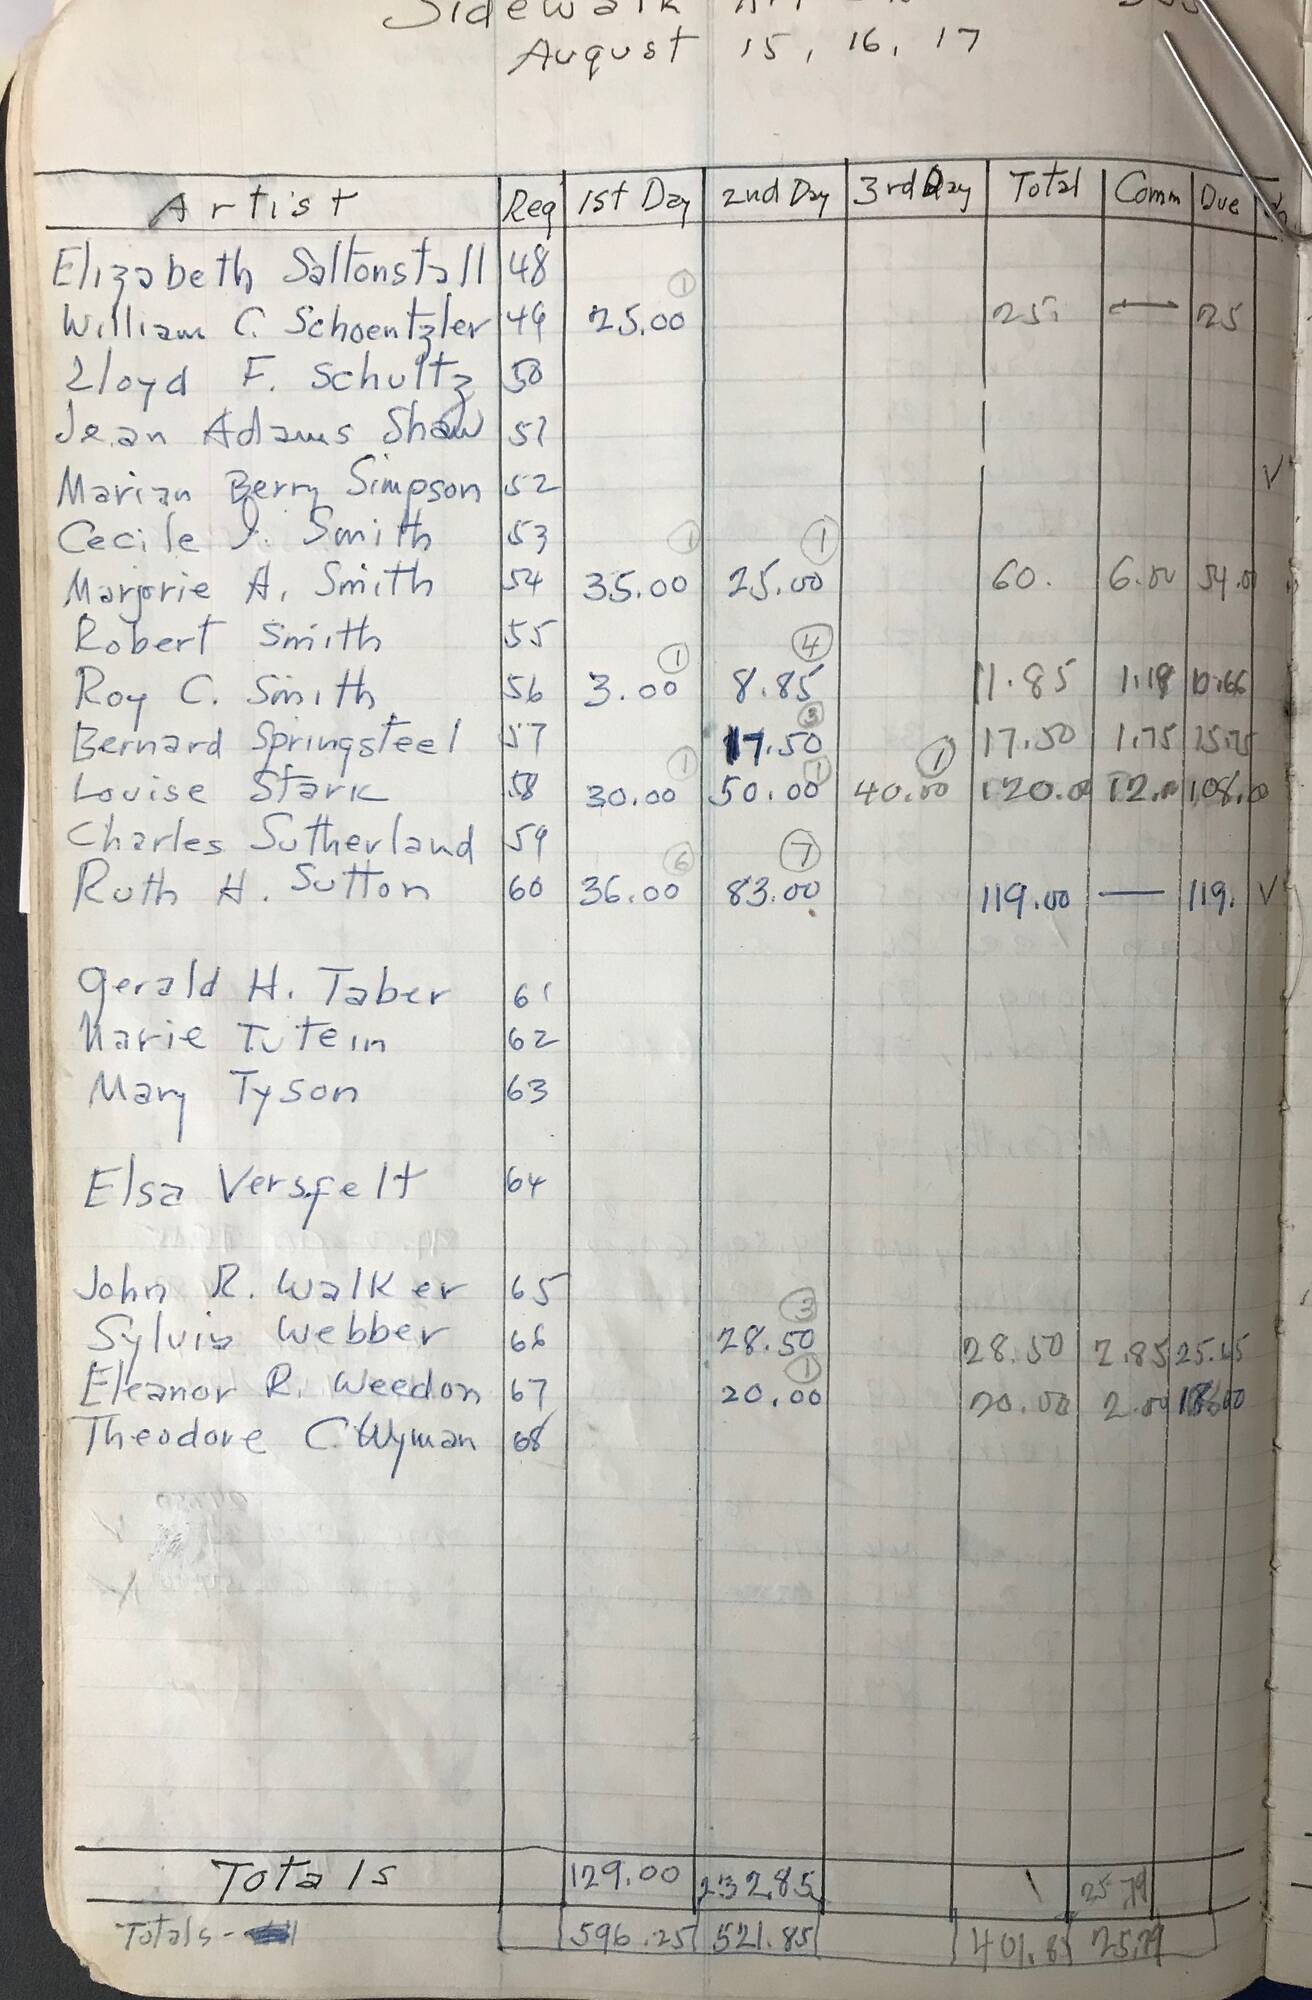 Sidewalk
August 15, 16, 17
Artist Reg 1st Day 2nd Day 3rd Day Total Comm Due
Elizabeth Saltonstall 48
William C. Schoentzler 49 25.00 (1) 25. — 25
Lloyd F. Schultz 50
Jean Adams Shaw 51
Marian Berry Simpson 52 V
Cecile J. Smith 53
Marjorie A. Smith 54 35.00 (1) 25.00 (1) 60. 6.00 54.00
Robert Smith 55
Roy C. Smith 56 3.00 (1) 8.85 (4) 11.85 1.18 10.66
Bernard Springsteel 57 17.50 (3) 17.50 1.75 15.75
Louise Stark 58 30.00 (1) 50.00 (1) 40.00 (1) 120.00 12.00 108.00
Charles Sutherland 59
Ruth H. Sutton 60 36.00 (6) 83.00 (7) 119.00 — 119. V
Gerald H. Taber 61
Marie Tutein 62
Mary Tyson 63
Elsa Versfelt 64
John R. Walker 65
Sylvia Webber 66 28.50 (3) 28.50 2.85 25.65
Eleanor R. Weedon 67 20.00 (1) 20.00 2.00 18.00
Theodore C. Wyman 68
Totals 129.00 232.85 25.79
Totals - 596.25 521.85 401.85 25.79